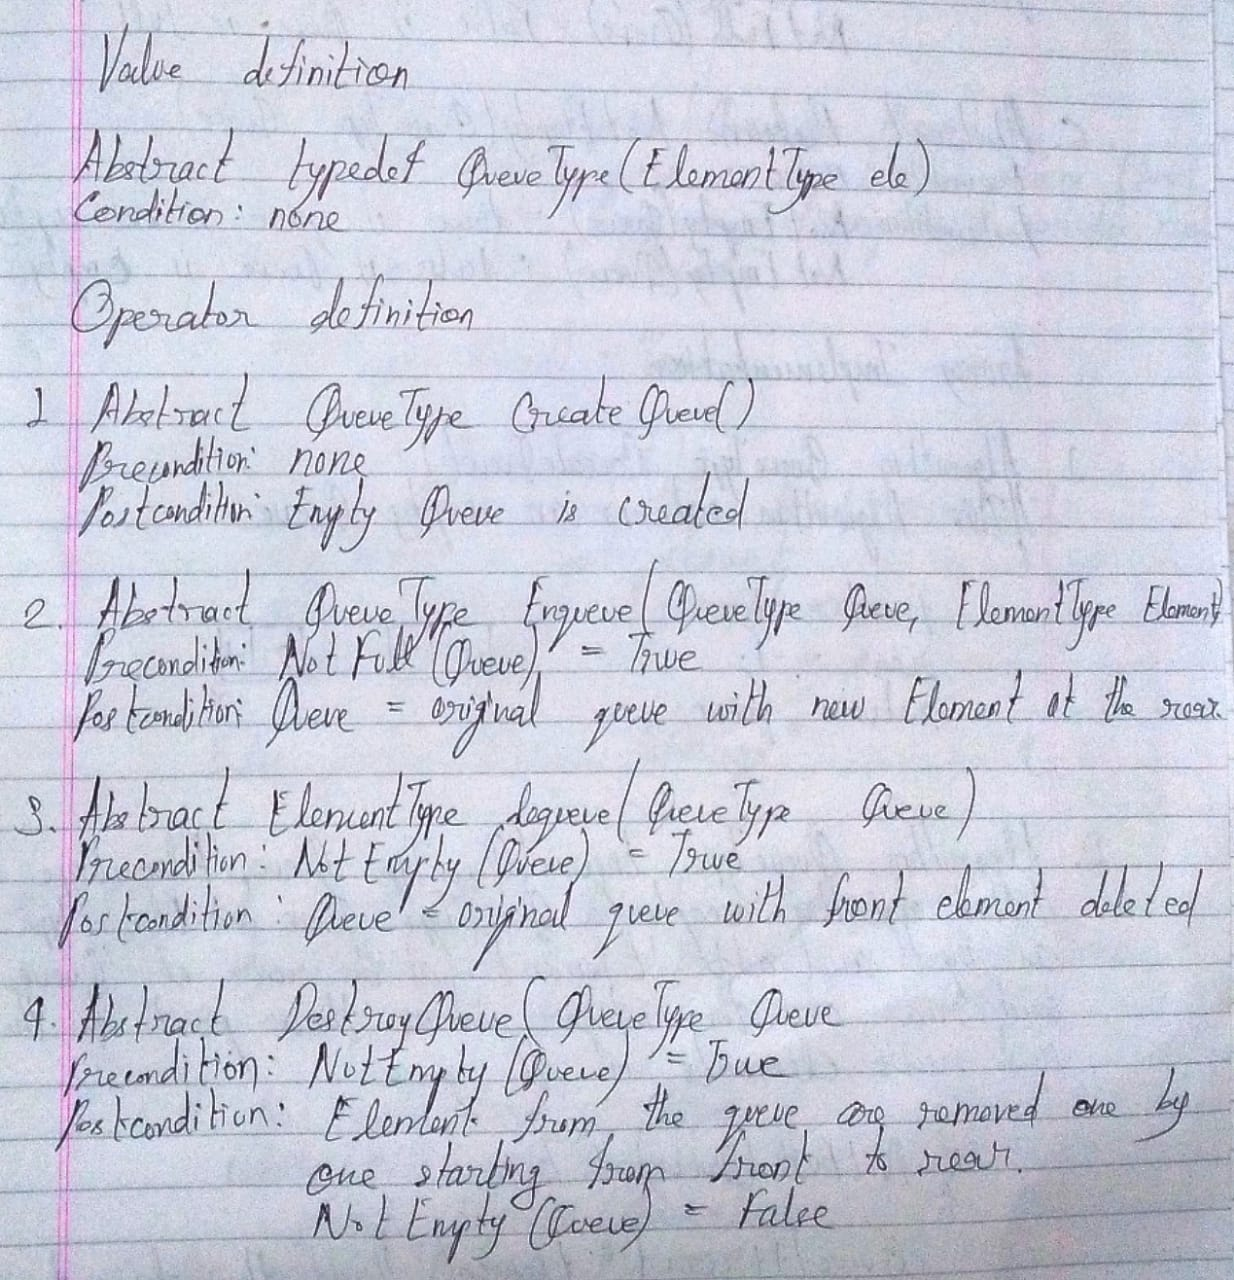 Value definition
Abstract typedef QueueType(ElementType ele)
Condition: none
Operator definition
1 Abstract QueueType CreateQueue()
Precondition: none
Postcondition: Empty Queue is created
2. Abstract QueueType Enqueue(QueueType Queue, ElementType Element)
Precondition: NotFull(Queue) = True
Postcondition: Queue = original queue with new Element at the rear
3. Abstract ElementType dequeue(QueueType Queue)
Precondition: NotEmpty(Queue) = True
Postcondition: Queue = original queue with front element deleted
4. Abstract DestroyQueue(QueueType Queue
Precondition: NotEmpty(Queue) = True
Postcondition: Element from the queue are removed one by
one starting from front to rear.
NotEmpty(Queue) = False